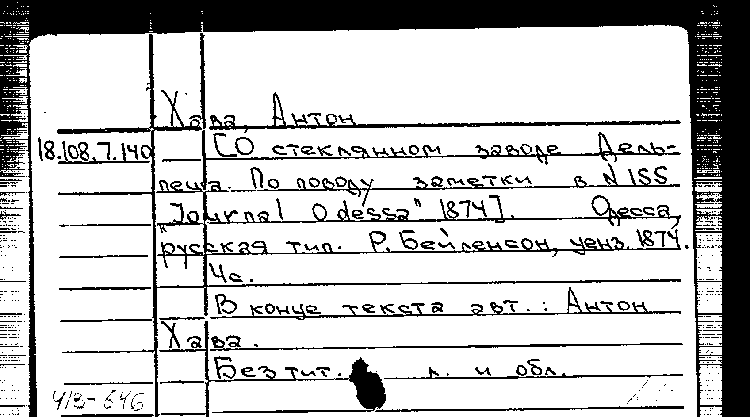 Хава, Антон
18.108.7.140 [О стеклянном заводе Дель-
пеша. По поводу заметки в N 155
„Journal Odessa" 1874]. Одесса,
русская тип. Р. Бейленсон, ценз. 1874.
4с.
В конце текста авт.: Антон
Хава.
Без тит. л. и обл.
413-646